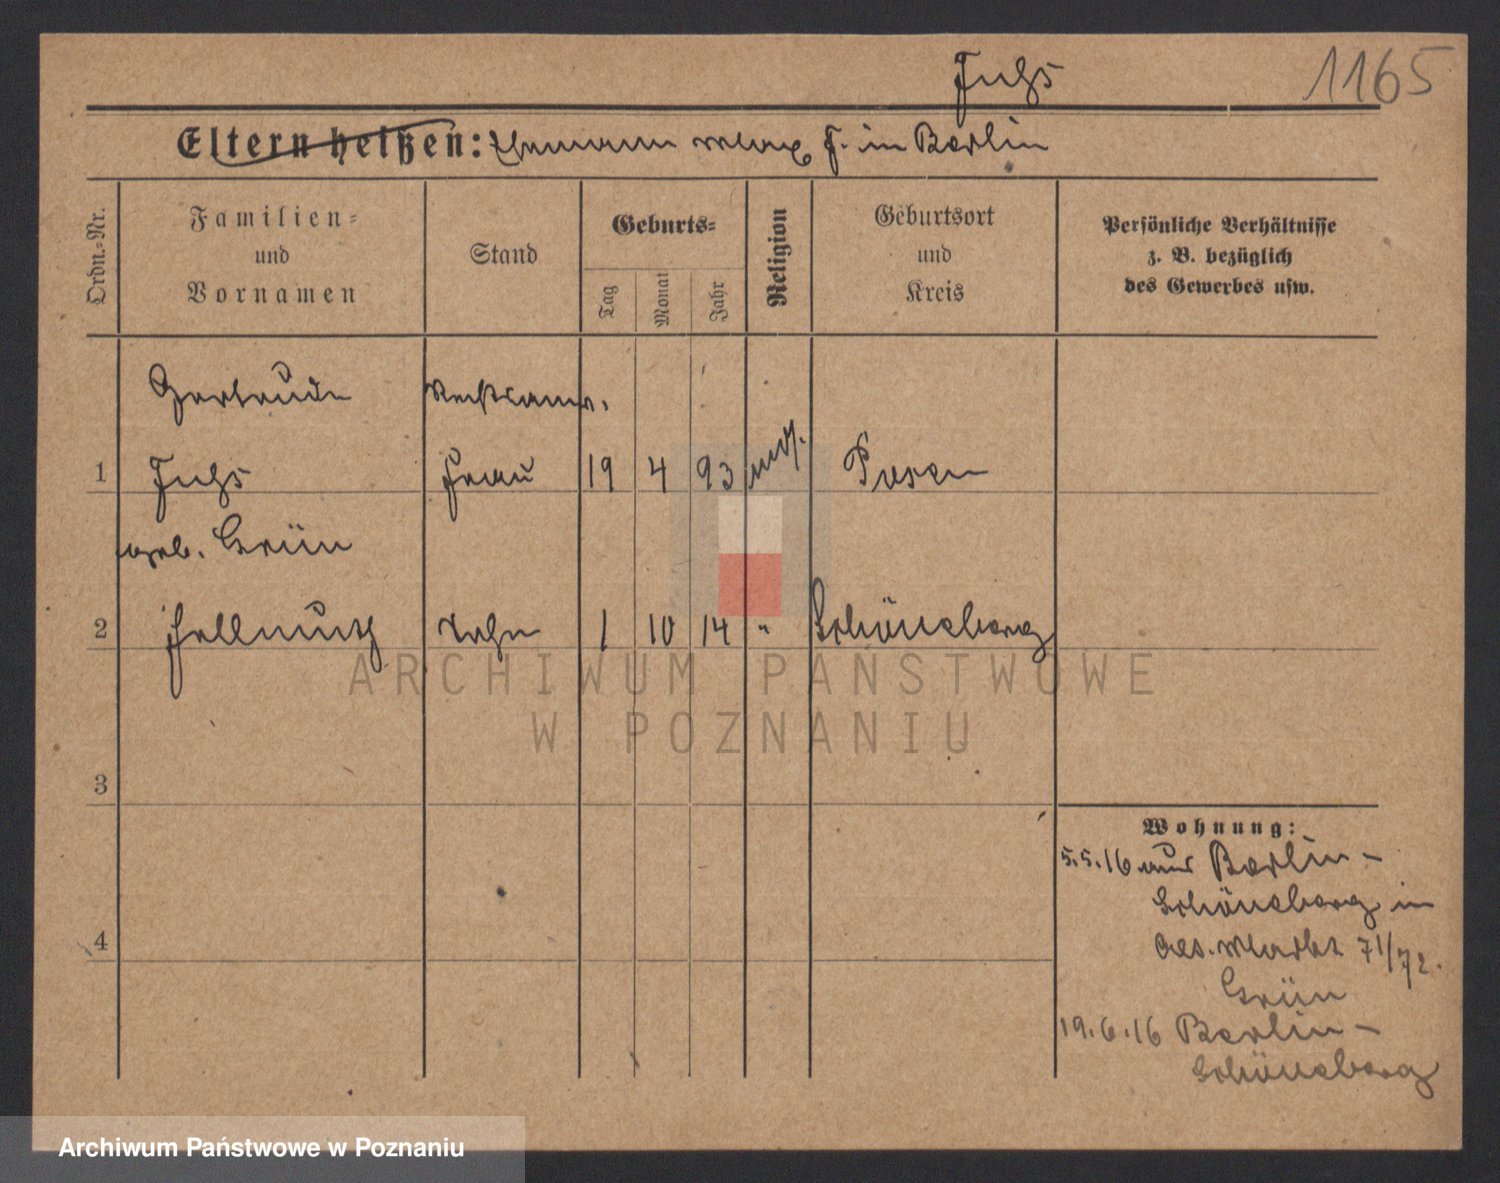 Fuchs 1165
Eltern heißen: Ehemann Max F. in Berlin
Ordn.-Nr.
Familien-
und
Vornamen
Stand
Geburts-
Tag
Monat
Jahr
Religion
Geburtsort
und
Kreis
Persönliche Verhältnisse
z. B. bezüglich
des Gewerbes usw.
Gertrude Rechtsanw.
1 Fuchs Frau 19 4 93 mos. Posen
geb. Grün
2 Hellmuth Sohn 1 10 14 " Schöneberg
3
4
Wohnung:
5.5.16 aus Berlin-
Schöneberg in
Markt 71/72.
Grün
19.6.16 Berlin-
Schöneberg
ARCHIWUM PAŃSTWOWE
W POZNANIU
Archiwum Państwowe w Poznaniu